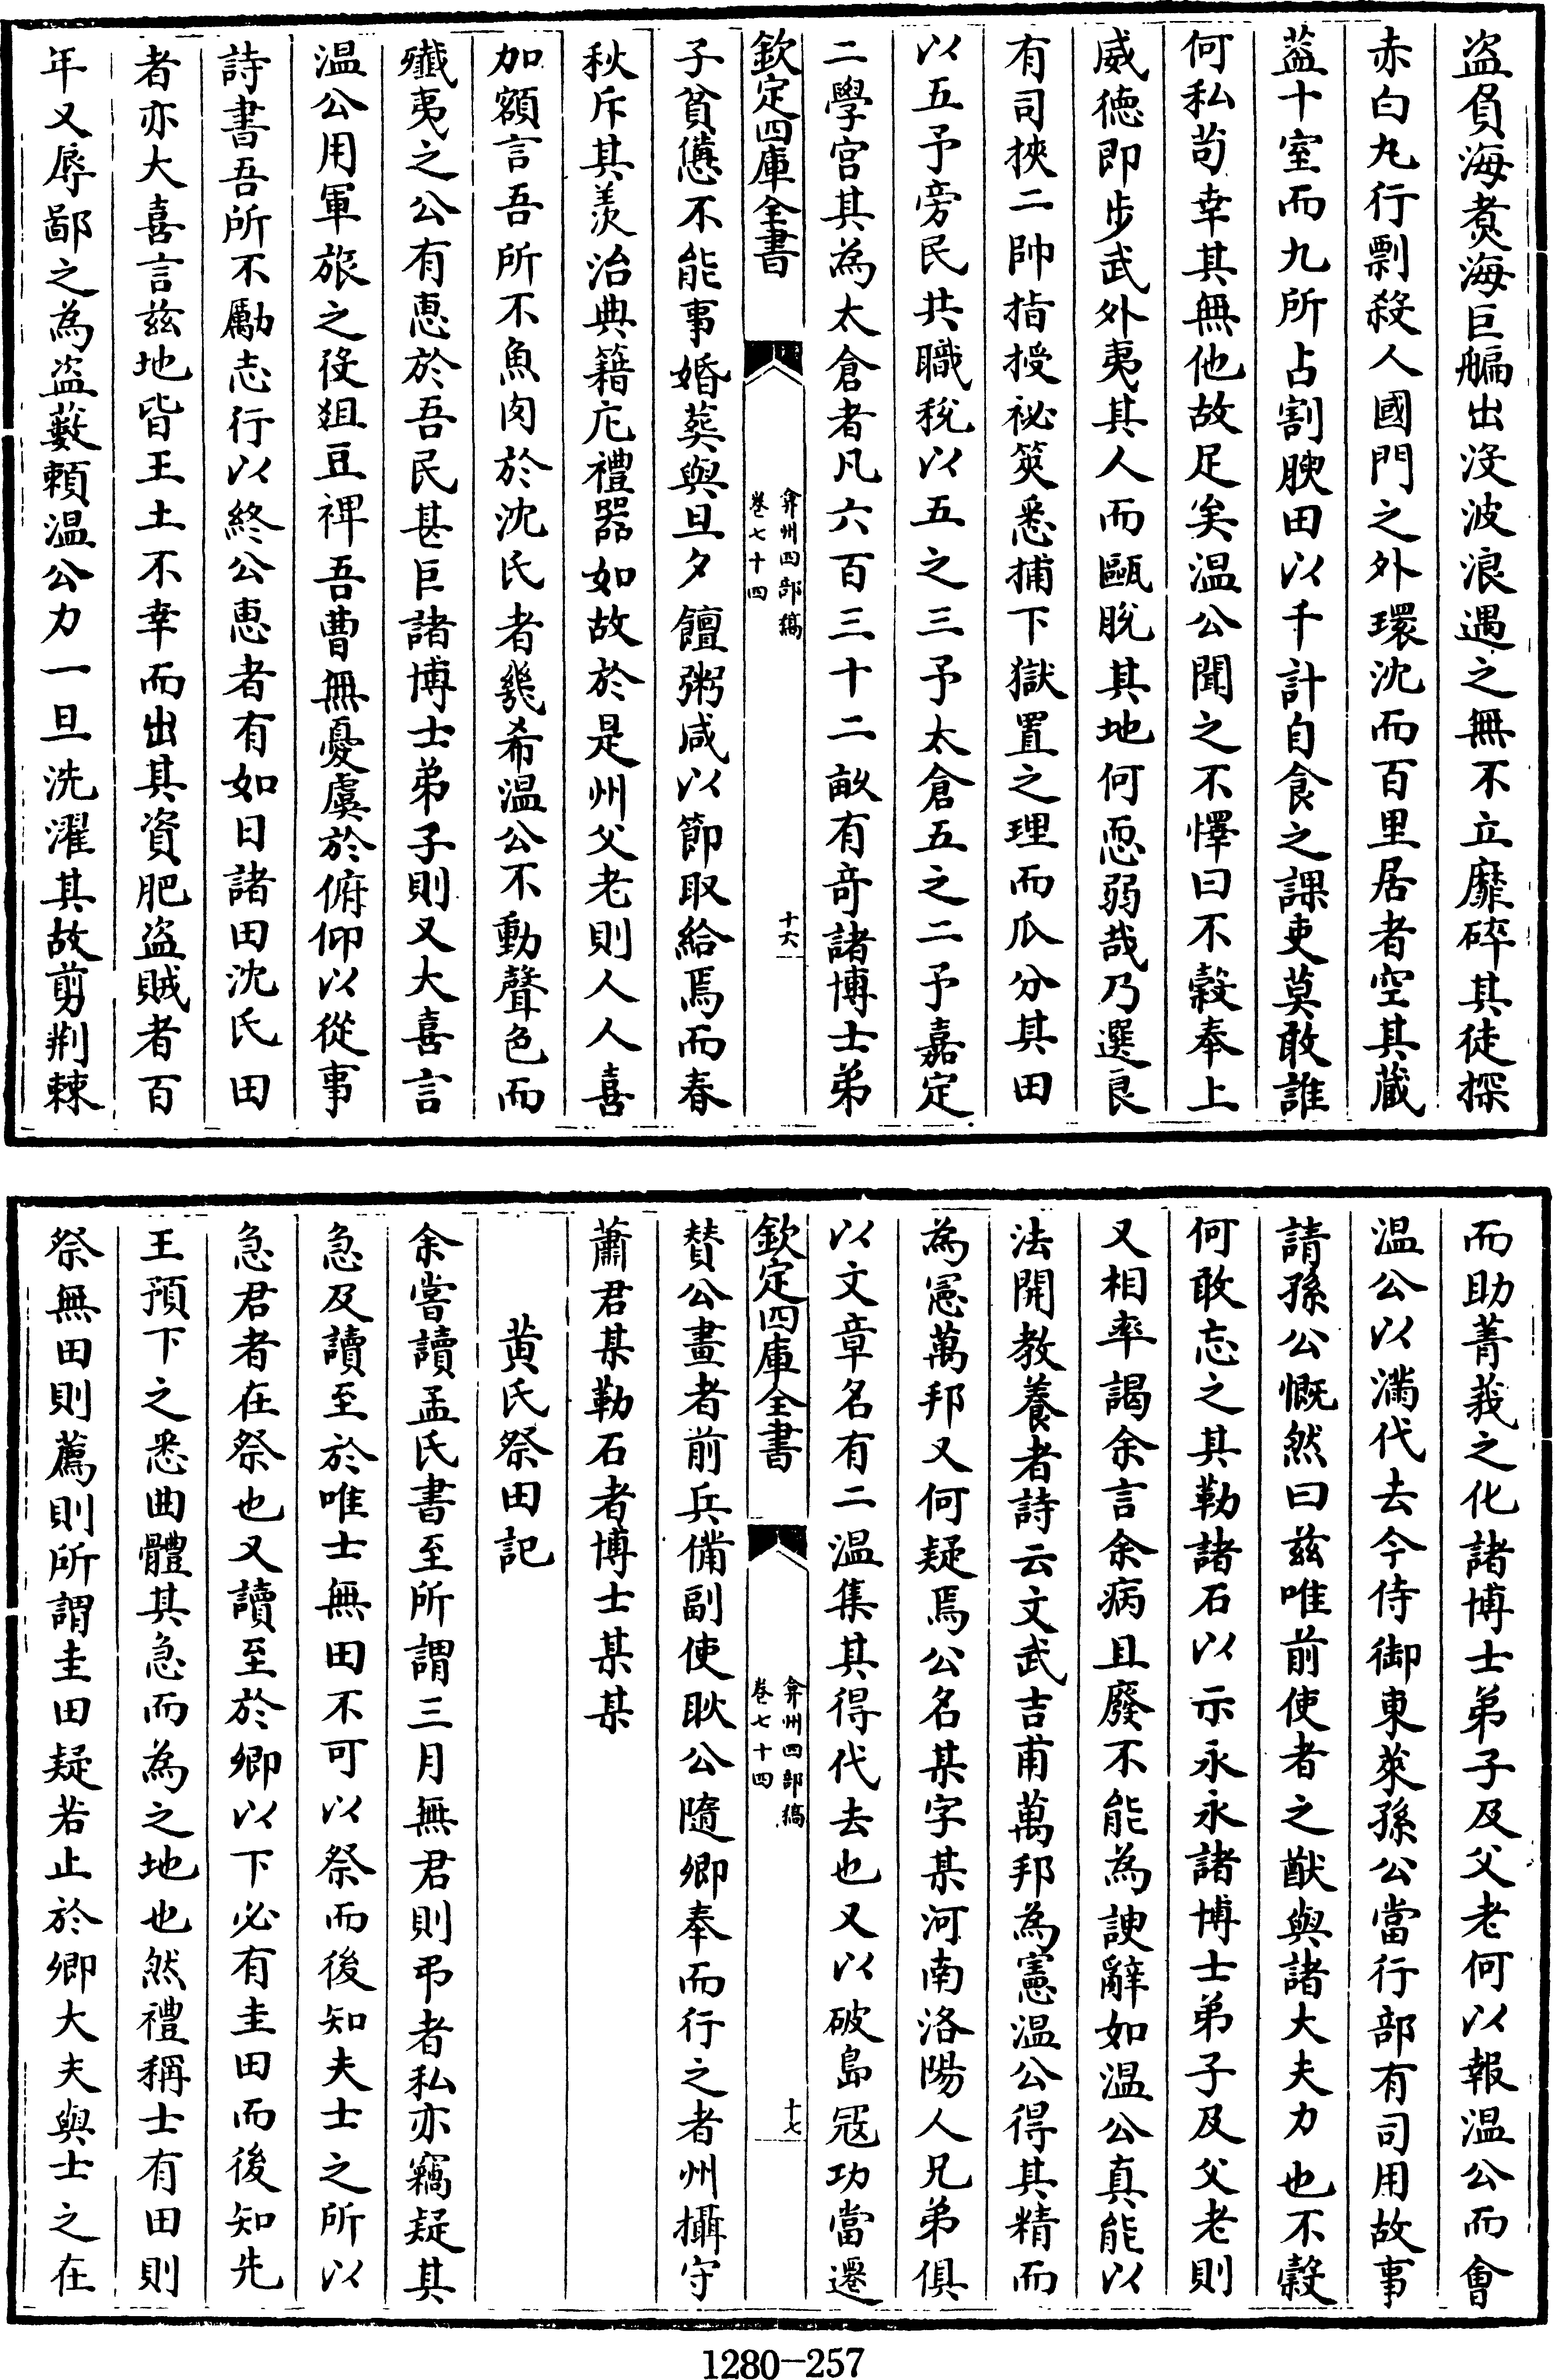 盜負海煑海巨艑出沒波浪遇之無不立靡碎其徒探
赤白丸行剽殺人國門之外環沈而百里居者空其藏
葢十室而九所占割腴田以千計自食之課吏莫敢誰
何私苟幸其無他故足矣温公聞之不懌曰不穀奉上
威德即步武外夷其人而甌脫其地何恧弱哉乃選良
有司挾二帥指授祕筴悉捕下獄置之理而瓜分其田
以五予旁民共職稅以五之三予太倉五之二予嘉定
二學宫其為太倉者凡六百三十二畝有竒諸博士弟
欽定四庫全書
弇州四部稿
卷七十四
十六
子貧憊不能事婚葬與旦夕饘粥咸以節取給焉而春
秋斥其羨治典籍庀禮器如故於是州父老則人人喜
加額言吾所不魚肉於沈氏者幾希温公不動聲色而
殱夷之公有惠於吾民甚巨諸博士弟子則又大喜言
温公用軍旅之伇俎豆裨吾曹無憂虞於俯仰以從事
詩書吾所不勵志行以終公惠者有如日諸田沈氏田
者亦大喜言兹地皆王土不幸而出其資肥盜賊者百
年又辱鄙之為盜藪頼温公力一旦洗濯其故剪荆棘
而助菁莪之化諸博士弟子及父老何以報温公而會
温公以滿代去今侍御東萊孫公當行部有司用故事
請孫公慨然曰兹唯前使者之猷與諸大夫力也不穀
何敢忘之其勒諸石以示永永諸博士弟子及父老則
又相率謁余言余病且廢不能為諛辭如温公真能以
法開教養者詩云文武吉甫萬邦為憲温公得其精而
為憲萬邦又何疑焉公名某字某河南洛陽人兄弟俱
以文章名有二温集其得代去也又以破島冦功當遷
欽定四庫全書
弇州四部稿
卷七十四
十七
贊公畫者前兵備副使耿公隨卿奉而行之者州攝守
蕭君某勒石者博士某某
黄氏祭田記
余嘗讀孟氏書至所謂三月無君則弔者私亦竊疑其
急及讀至於唯士無田不可以祭而後知夫士之所以
急君者在祭也又讀至於卿以下必有圭田而後知先
王預下之悉曲體其急而為之地也然禮稱士有田則
祭無田則薦則所謂圭田疑若止於卿大夫與士之在
1280-257